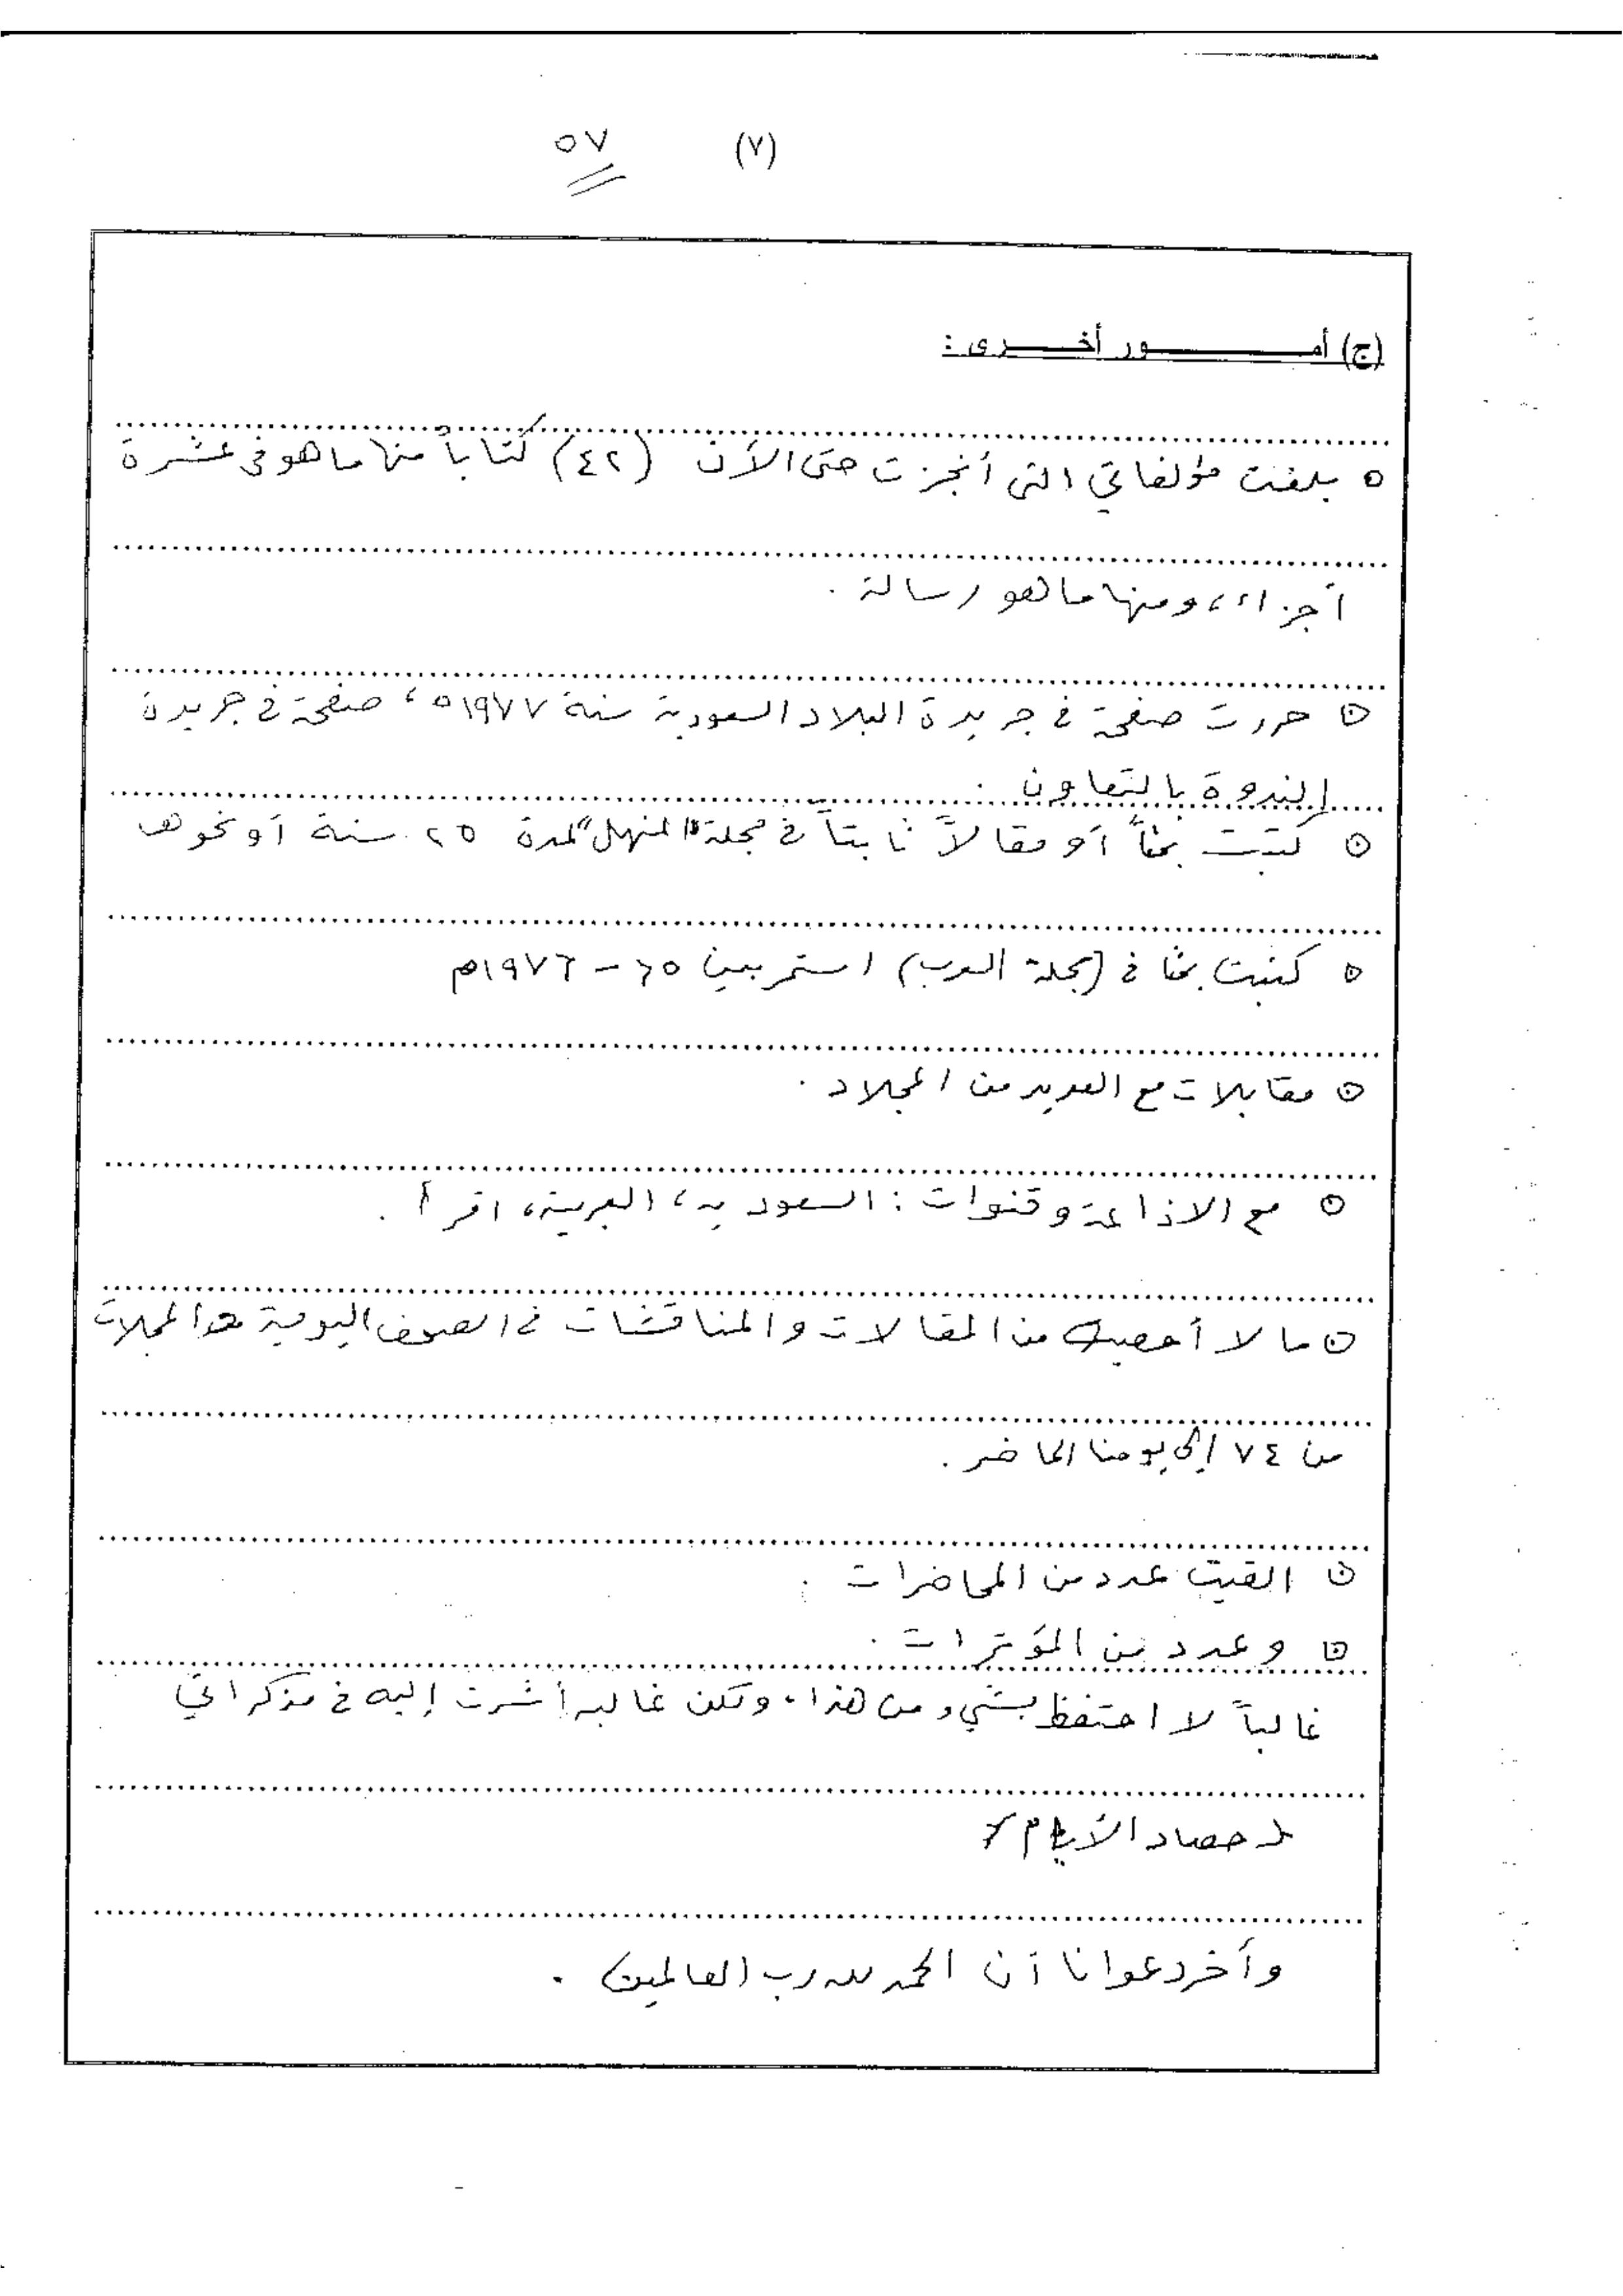 (٧) ٥٧
(ج) أمــور أخــرى :
٥ بلغت مؤلفاتي التي أنجزت حتى الآن (٤٢) كتاباً منها ما هو في عشرة
أجزاء، ومنها ما هو رسالة .
٥ حررت صفحة في جريدة البلاد السعودية سنة ١٩٧٧ ، صفحة في جريدة
الندوة بالتعاون .
٥ كتبت بحثاً أو مقالاً ثابتاً في مجلة "المنهل" لمدة ٢٥ سنة أو نحوها
٥ كتبت بحثا في (مجلة العرب) استمر بين ٦٥ - ١٩٧٦م
٥ مقابلات مع العديد من المجلاد .
٥ مع الاذاعة وقنوات : السعودية، العربية، اقرأ .
٥ ما لا أحصيه من المقالات والمناقشات في الصحف اليومية والمجلات
من ٧٤ إلى يومنا الحاضر .
٥ القيت عدد من المحاضرات .
٥ وعدد من المؤتمرات .
غالباً لا احتفظ بشيء من هذا، ولكن غالبه أشرت إليه في مذكراتي
حصاد الأيام
وأخر دعوانا أن الحمد لله رب العالمين .